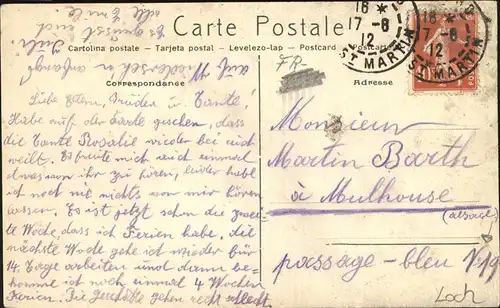 Carte Postale
Cartolina postale - Tarjeta postal - Levelezo-lap - Postcard - Postcarte
Correspondance
Adresse
FR-
18 *
17-8
12
ST MARTIN
18 *
17-8
12
ST MARTIN
10
POSTES
Liebe Eltern, Brüder u. Tante!
Habe auf der Karte gesehen, dass
die Tante Rosalie wieder bei euch
weilt. Es freute mich auch einmal
etwas von ihr zu hören, leider habt
ihr noch nie nichts von mir hören
lassen. Es ist jetzt schon die zweite
Woche, dass ich Ferien habe, die
nächste Woche gehe ich wieder für
14. Tage arbeiten und dann be-
komme ich noch einmal 4 Wochen
Ferien. Die Geschäfte gehen recht schlecht
auf Wiedersehn
Es grüsst euch
Emile
Monsieur
Martin Barth
à Mulhouse
(alsace)
passage-bleu
Loch